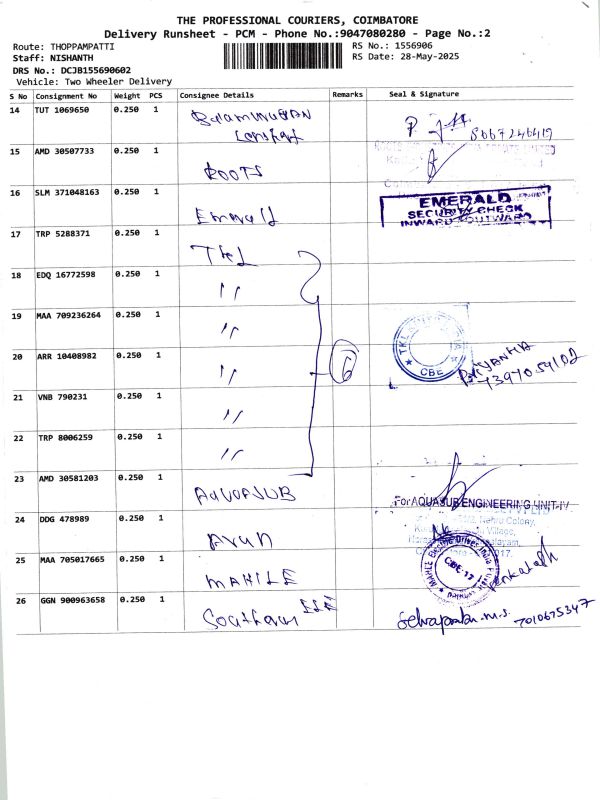 THE PROFESSIONAL COURIERS, COIMBATORE
Delivery Runsheet - PCM - Phone No.:9047080280 - Page No.:2
Route: THOPPAMPATTI
RS No.: 1556906
Staff: NISHANTH
RS Date: 28-May-2025
DRS No.: DCJB155690602
Vehicle: Two Wheeler Delivery
S No Consignment No Weight PCS Consignee Details Remarks Seal & Signature
14 TUT 1069650 0.250 1 Balamurugan
8667246419
15 AMD 30507733 0.250 1 ROOTS
16 SLM 371048163 0.250 1
EMERALD
SECURITY CHECK
INWARD / OUTWARD
17 TRP 5288371 0.250 1 TKL
18 EDQ 16772598 0.250 1 ''
19 MAA 709236264 0.250 1 ''
20 ARR 10408982 0.250 1 '' 6
CBE
PRIYANKA
21 VNB 790231 0.250 1 ''
22 TRP 8006259 0.250 1 ''
23 AMD 30581203 0.250 1 AQUASUB
For AQUASUB ENGINEERING UNIT-IV
24 DDG 478989 0.250 1
25 MAA 705017665 0.250 1 MAHLE
CBE-17
Venkatesh
26 GGN 900963658 0.250 1 Southern
7010675347